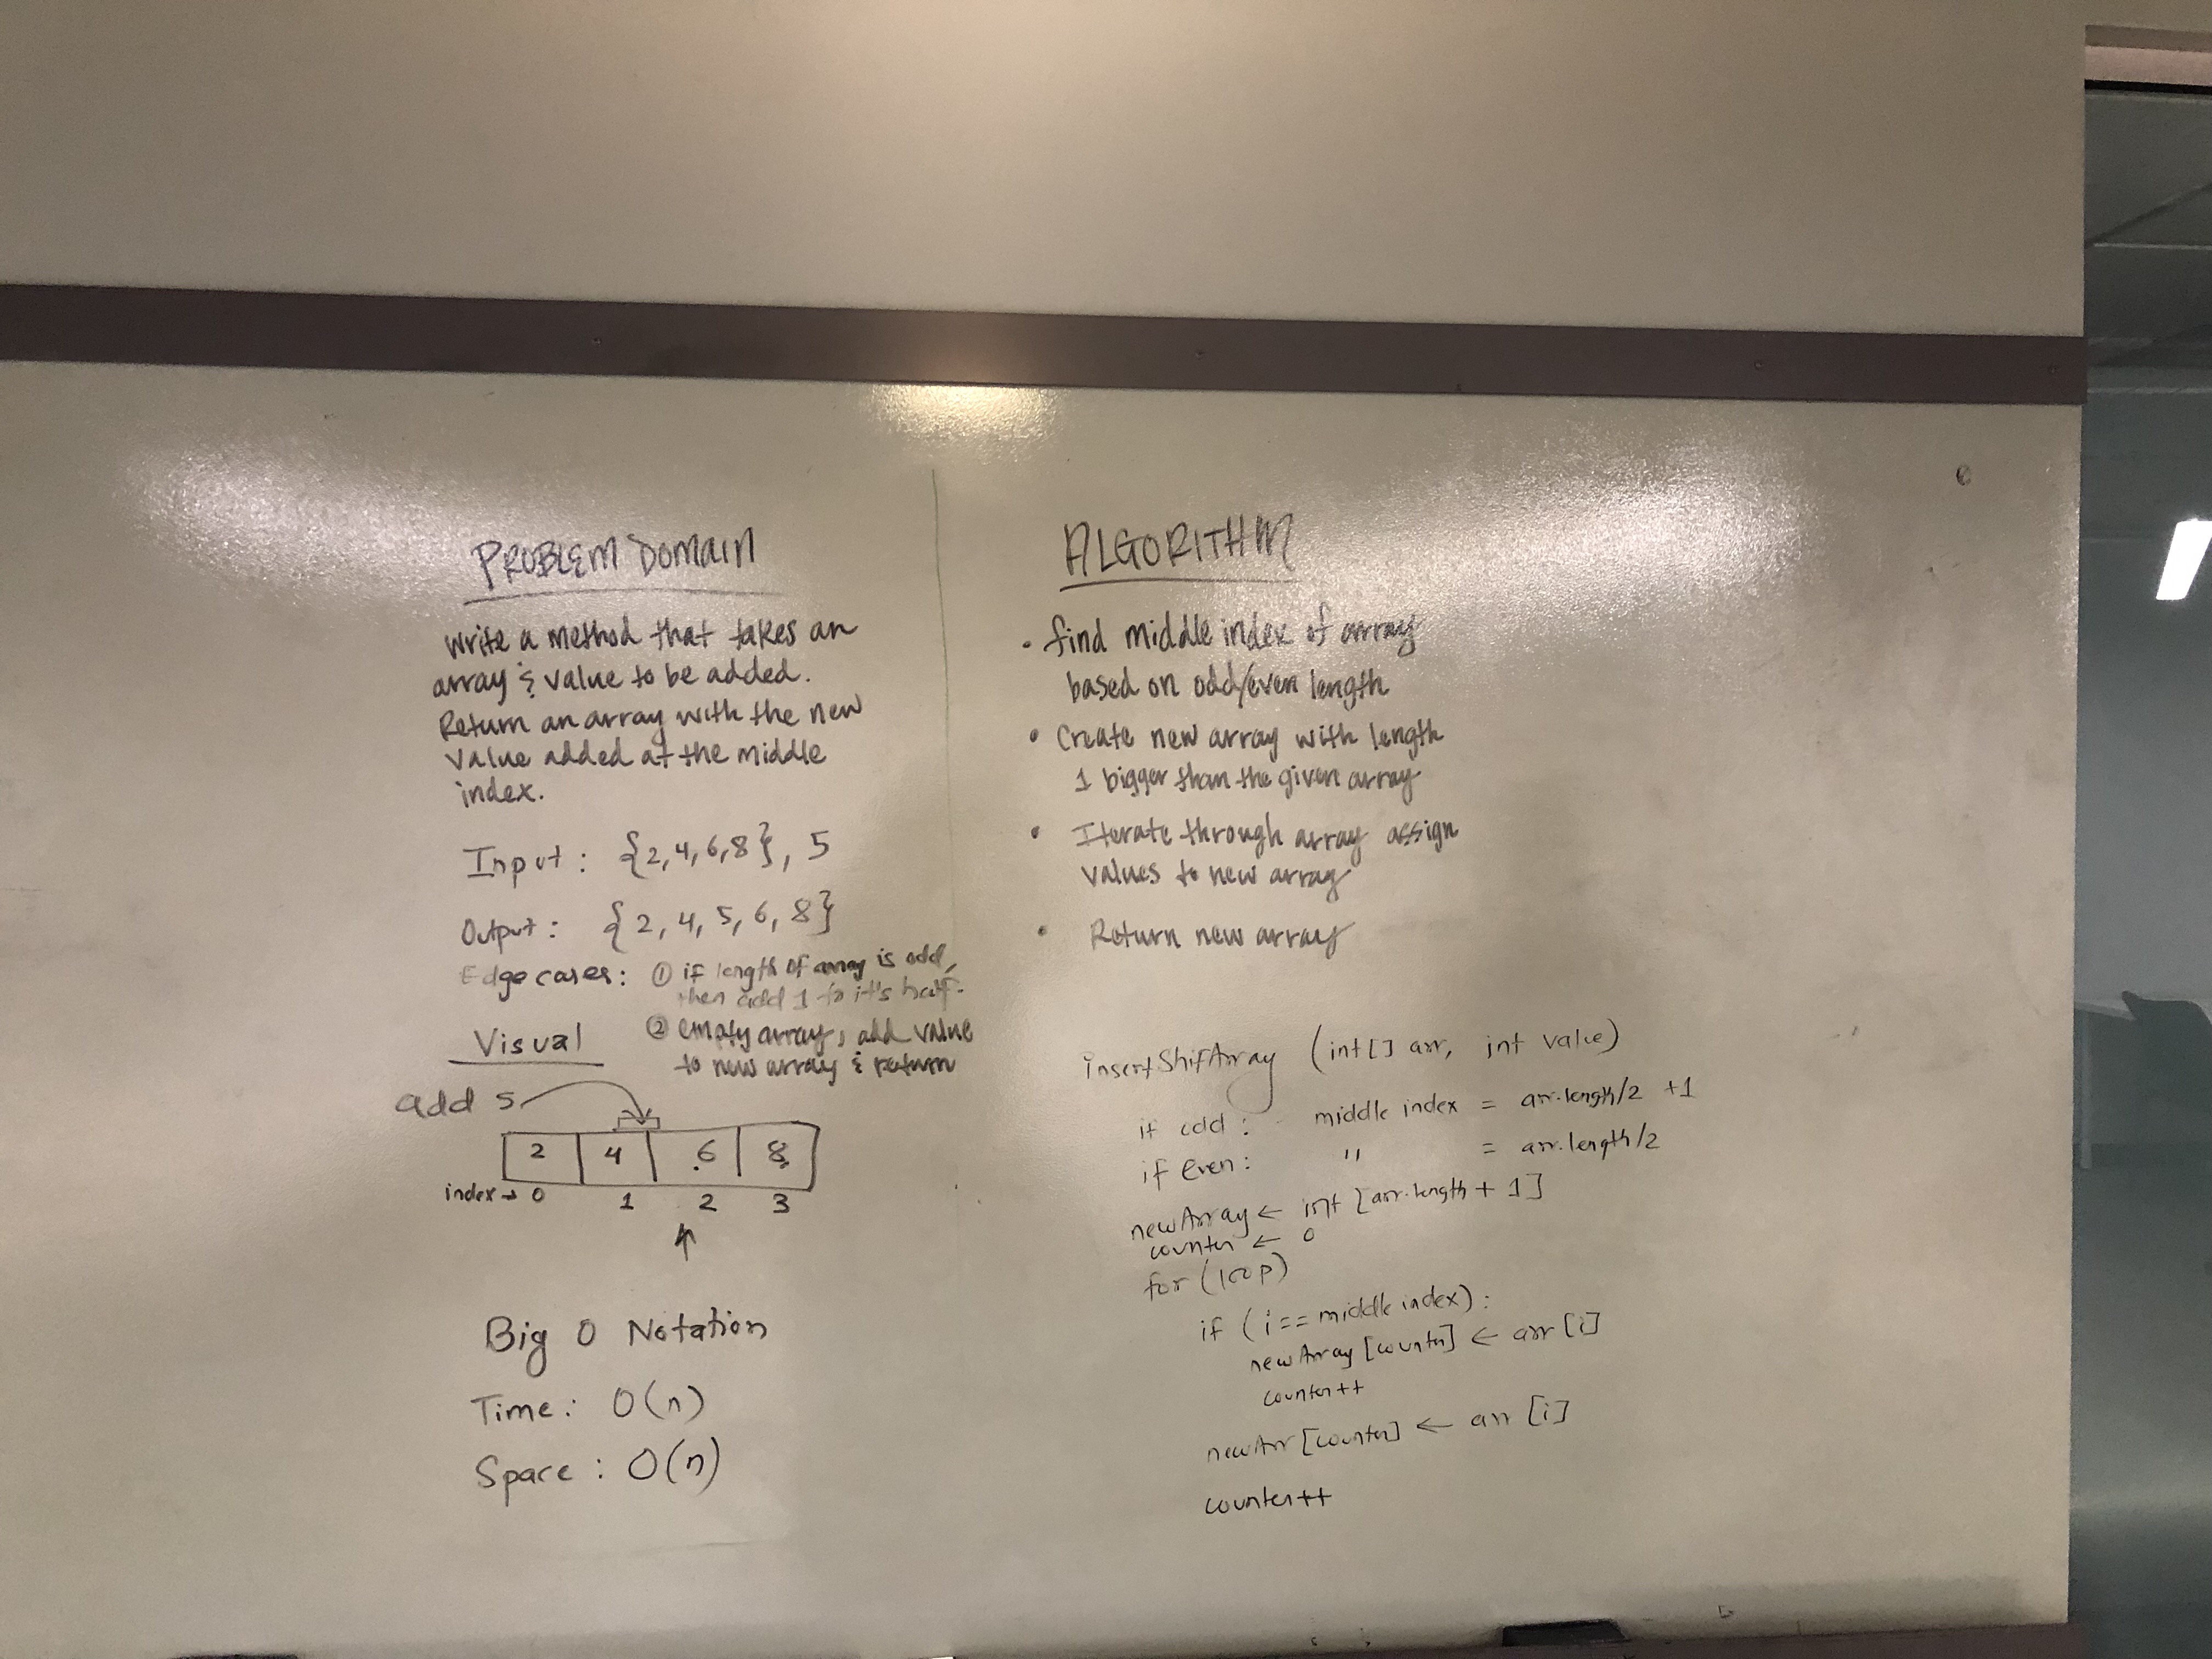 PROBLEM DOMAIN
write a method that takes an
array & value to be added.
Return an array with the new
value added at the middle
index.
Input : {2,4,6,8}, 5
Output : {2, 4, 5, 6, 8}
Edge cases: ① if length of array is odd,
then add 1 to it's half.
② empty array, add value
to new array & return
Visual
add 5
2 4 6 8
index → 0 1 2 3
Big O Notation
Time : O(n)
Space : O(n)
ALGORITHM
• find middle index of array
based on odd/even length
• Create new array with length
1 bigger than the given array
• Iterate through array assign
values to new array
• Return new array
insertShifArray (int[] arr, int value)
if odd : middle index = arr.length/2 +1
if Even : " = arr.length/2
newArray ← int [arr.length + 1]
counter ← 0
for (loop)
if (i == middle index) :
newArray [counter] ← arr [i]
counter++
newArr [counter] ← arr [i]
counter++